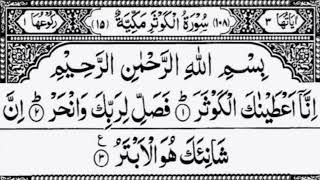 اٰیَاتُهَا ٣ (١٠٨) سُوْرَةُ الْكَوْثَرِ مَكِّیَّةٌ (١٥) رُكُوْعُهَا ١
بِسْمِ اللّٰهِ الرَّحْمٰنِ الرَّحِیْمِ
اِنَّاۤ اَعْطَیْنٰكَ الْكَوْثَرَ ؕ﴿١﴾ فَصَلِّ لِرَبِّكَ وَانْحَرْ ؕ﴿٢﴾ اِنَّ
شَانِئَكَ هُوَ الْاَبْتَرُ ﴿٣﴾ ع